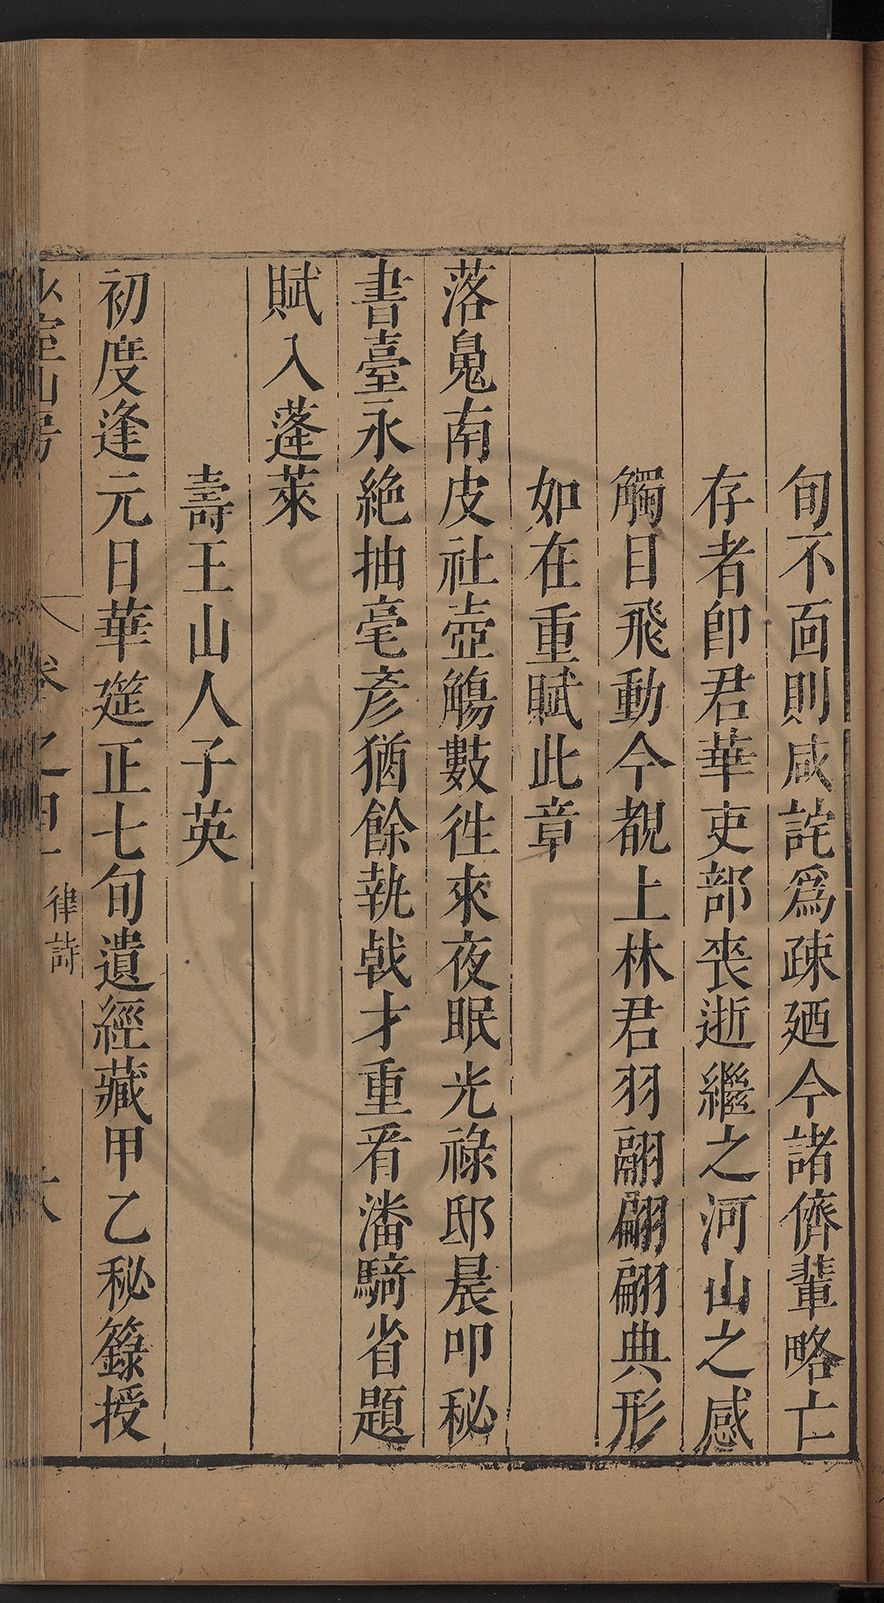 旬不面則咸詫爲疎廼今諸儕輩略亡
存者卽君華吏部喪逝繼之河山之感
觸目飛動今覩上林君羽翮翩翩典形
如在重賦此章
落鳬南皮社壺觴數徃來夜眠光祿邸晨叩秘
書臺永絶抽毫彥猶餘執戟才重看潘騎省題
賦入蓬萊
壽王山人子英
初度逢元日華筵正七旬遺經藏甲乙秘籙授
室山房 卷之四十 律詩 六